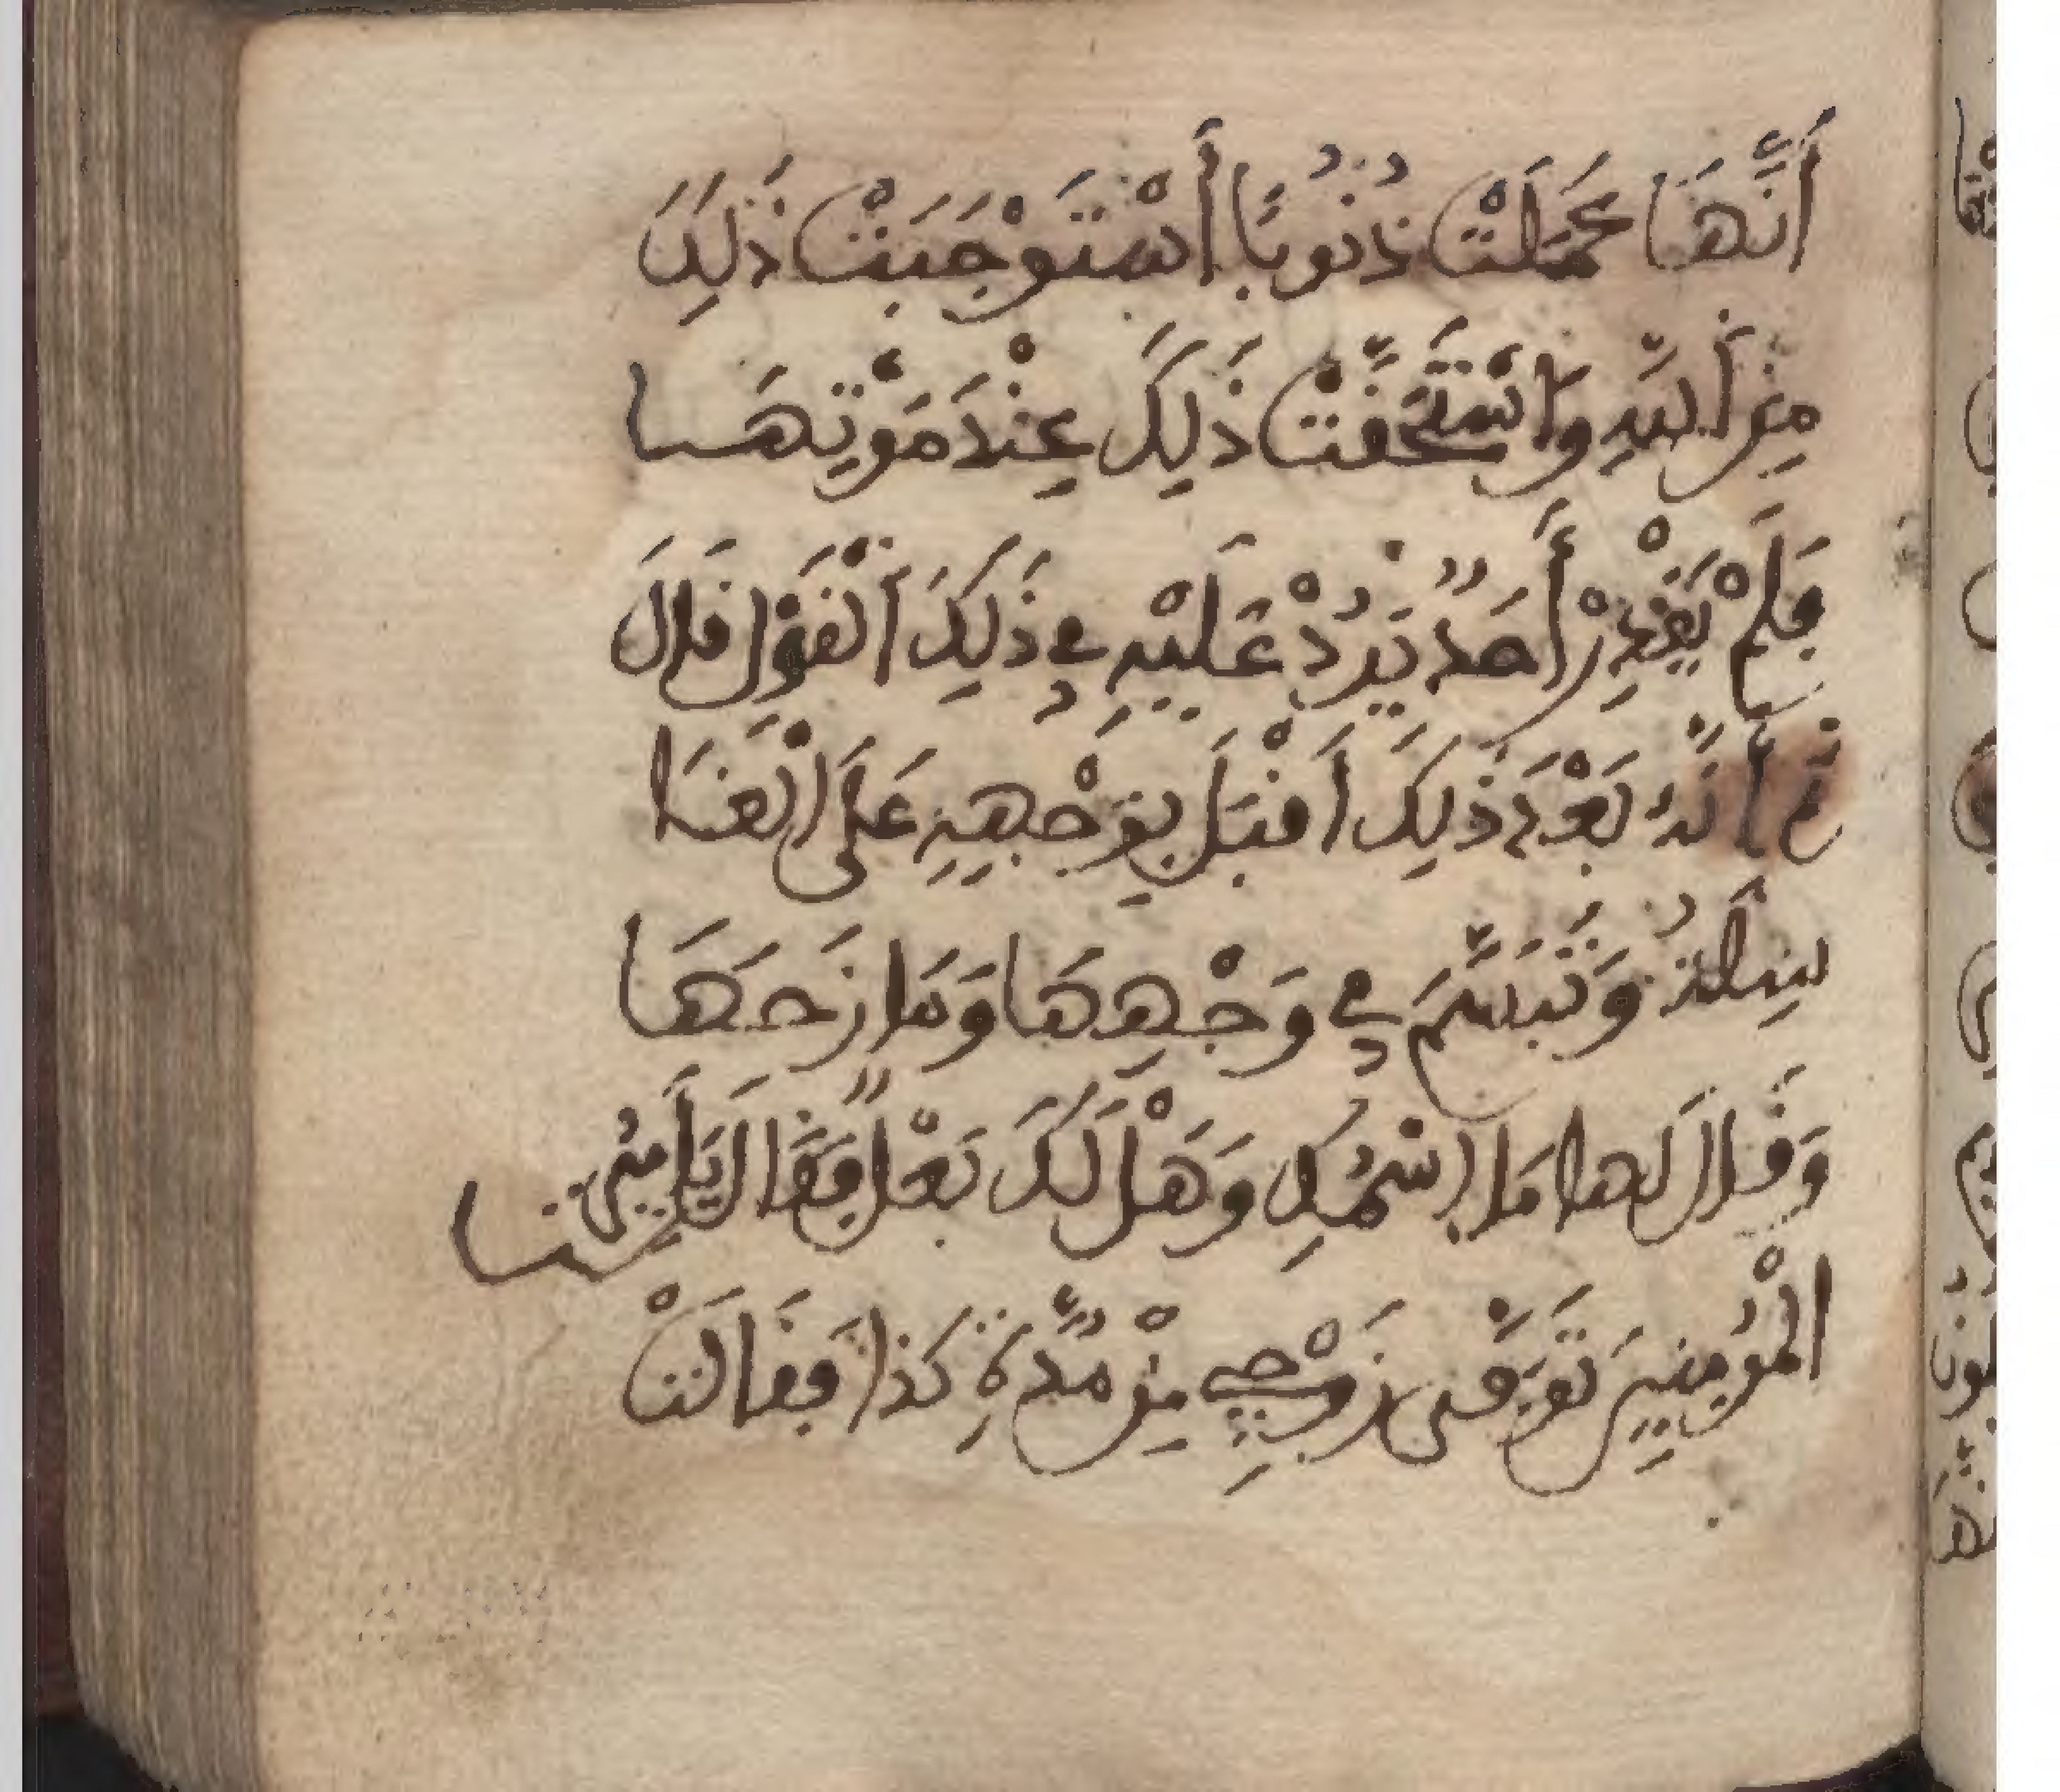 أَنَّهَا عَمَلَتْ ذُنُوبًا أَسْتَوْجَبَتْ ذَلِكَ
مِنَ اللَّهِ وَاسْتَحَقَّتْ ذَلِكَ عِنْدَ مَوْتِهَا
فَلَمْ يَقْدِرْ أَحَدٌ يَرُدْ عَلَيْهِ فِي ذَلِكَ الْقَوْلِ قَالَ
ثم أَنَّهُ بَعْدَ ذَلِكَ اَقْبَلَ بِوَجْهِهِ عَلَى الْغَا
سِلَةُ وَتَبَسَّمَ فِي وَجْهِهَا وَمَازَحَهَا
وَقَالَ لها مَا إسْمُكِ وَهَلْ لَكَ بَعْلاً فَقَالَ يَاأَمِيرَ
الْمُؤمِنِينَ تَوَفَّى زَوْجِي مِنْ مُدَّةِ كَذَا فَقَالَتْ